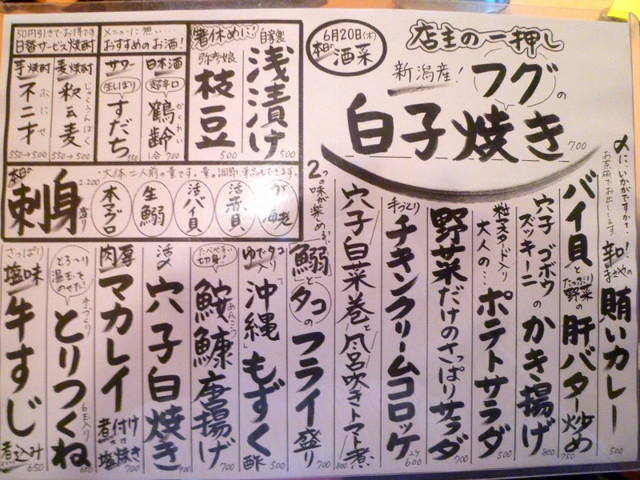 店主の一押し
新潟産!
フグの
白子焼き 700
6月20日(木)
本日の酒菜
箸休めに…
自家製
浅漬け 500
弥彦娘
枝豆 500
メニューに無い…
おすすめのお酒!
日本酒
超辛口
かくれい
鶴齢
1合 700
サワー
生しぼり
すだち
550
50円引きでお得です
日替サービス焼酎
麦焼酎
しゃくうんばく
釈云麦
550→500
芋焼酎
ふにせ
不二才
550→500
本日の
刺身
盛り
2,200
大体二人前の量です。
本マグロ
生鰯
活バイ貝
活赤貝
〆に、いかがですか?
お茶碗でお出しします。
辛口!
賄いカレー 500
バイ貝と
たっぷり野菜の
肝バター炒め 750
穴子 ゴボウ
ズッキーニ
のかき揚げ 800
粒マスタード入り
大人の…
ポテトサラダ 500
野菜だけのさっぱりサラダ 700
手づくり
チキンクリームコロッケ
2ケ 600
穴子白菜巻と風呂吹きトマト煮 800
2つの味が楽しめる
鰯とタコのフライ盛り 700
ゆでタコ入り
「沖縄」もずく酢 500
たべやすい
切身!
あんこう
鮟鱇唐揚げ 700
活〆
穴子白焼き 700
肉厚
マカレイ
煮付け
塩焼き
700
とろ〜り
温玉を
のせた!
手づくり
とりつくね
6玉入り
650
さっぱり
塩味
牛すじ煮込み 650